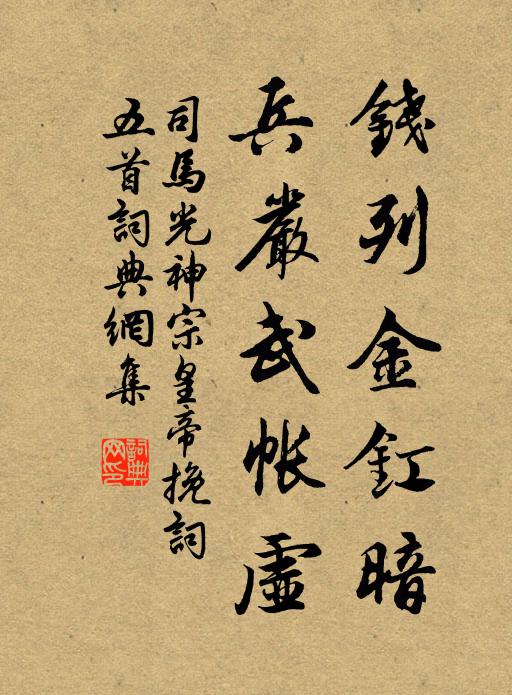 錢列金釭暗
兵嚴武帐虛
司馬光神宗皇帝挽詞
五首詞典網集
詞典網印